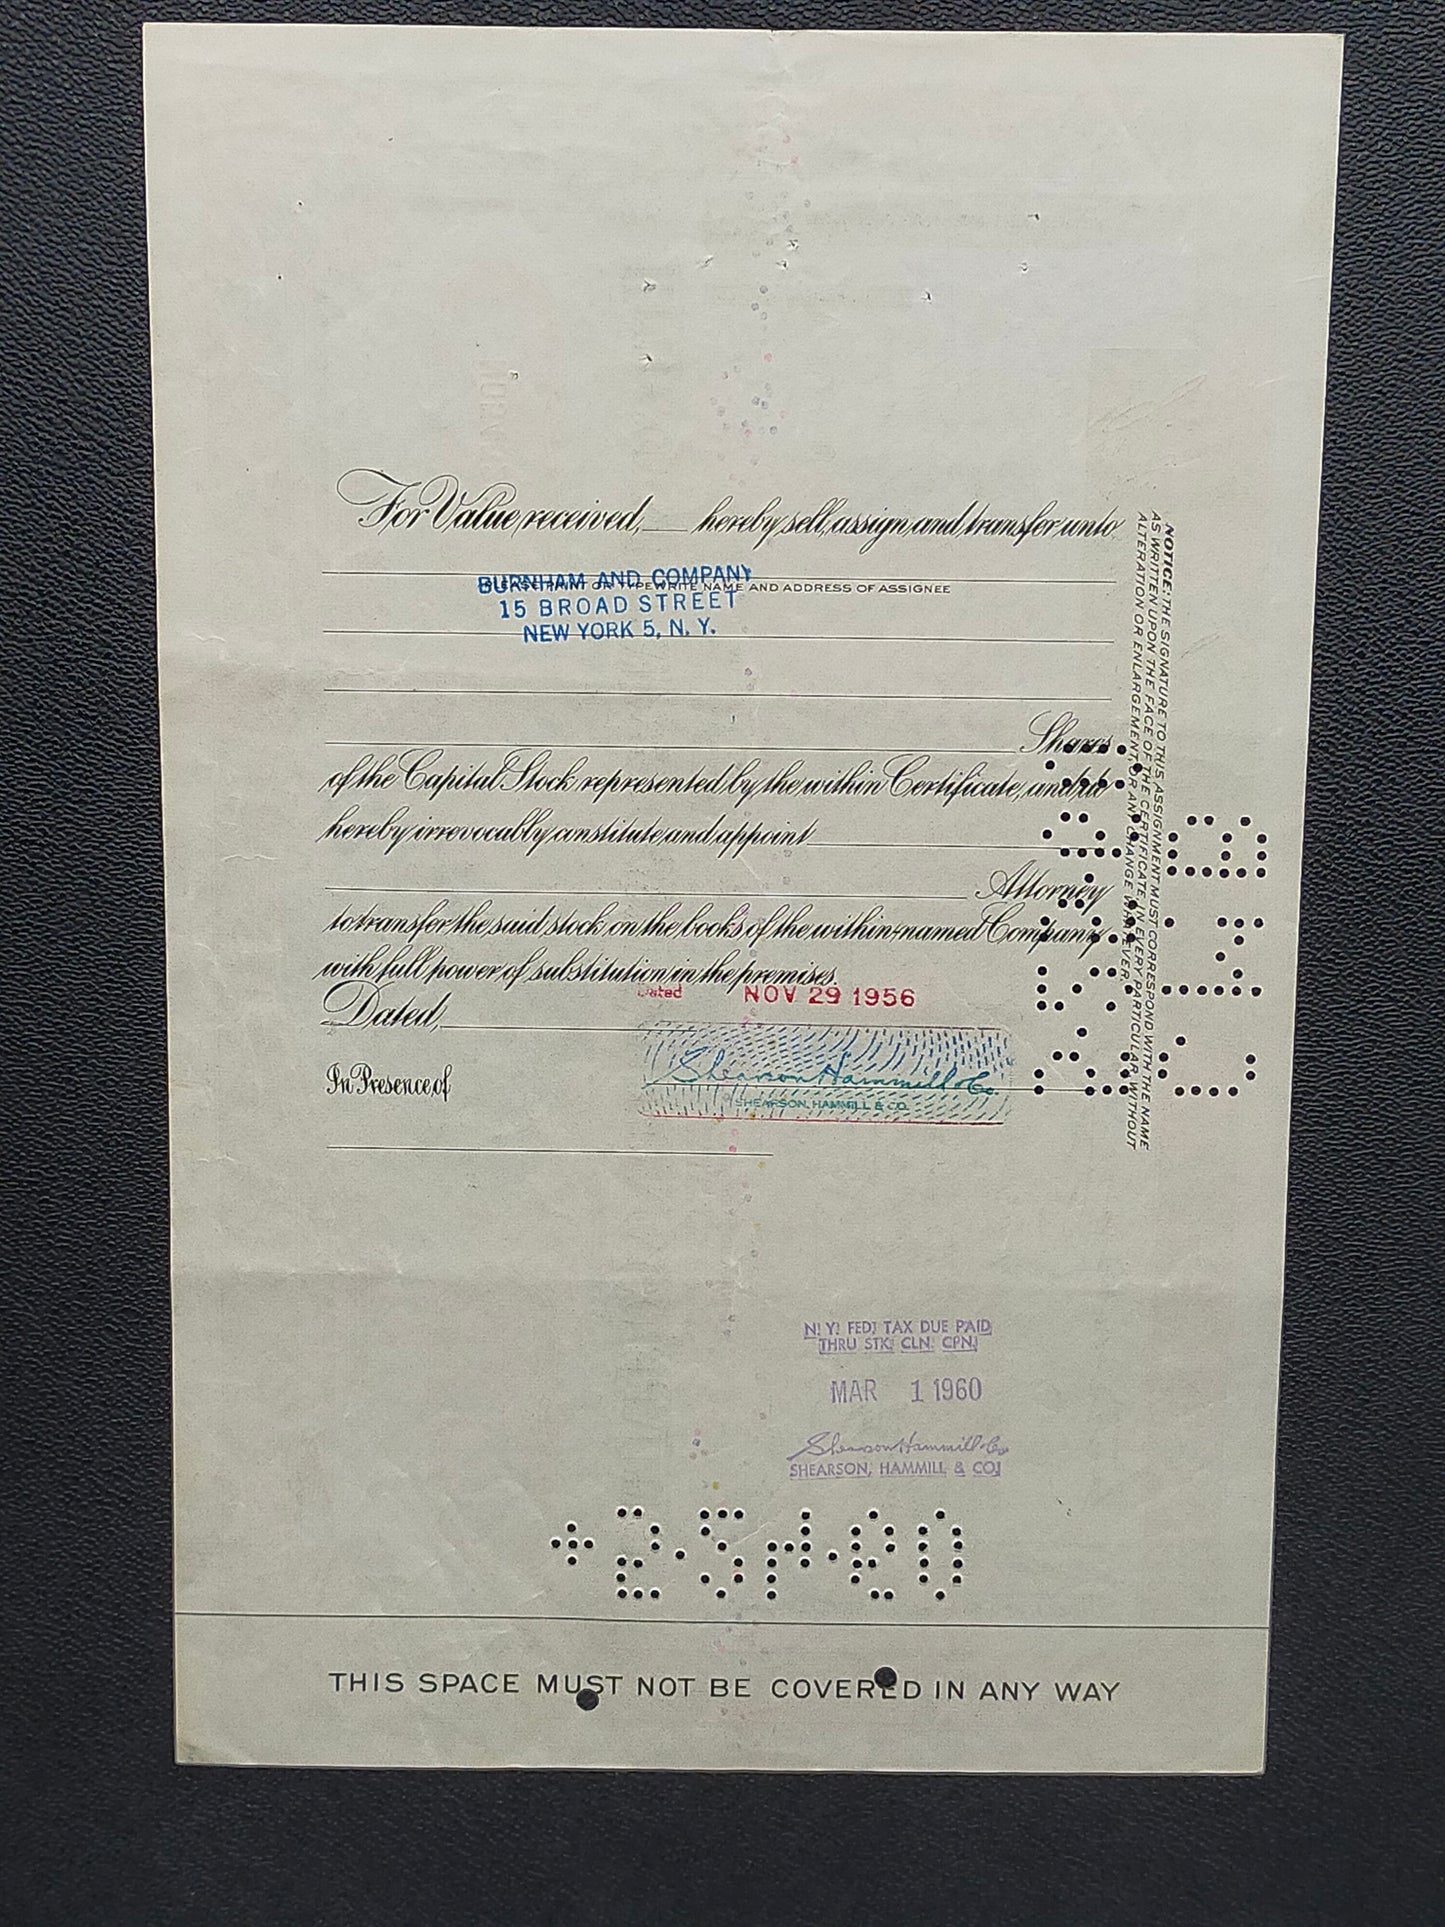 For Value received, ___ hereby sell, assign and transfer unto
BURNHAM AND COMPANY
PLEASE PRINT OR TYPEWRITE NAME AND ADDRESS OF ASSIGNEE
15 BROAD STREET
NEW YORK 5, N. Y.
Shares
of the Capital Stock represented by the within Certificate, and do
hereby irrevocably constitute and appoint
Attorney
to transfer the said stock on the books of the within-named Company
with full power of substitution in the premises.
Dated NOV 29 1956
Dated,
Shearson Hammill & Co.
In Presence of
SHEARSON, HAMMILL & CO.
NOTICE: THE SIGNATURE TO THIS ASSIGNMENT MUST CORRESPOND WITH THE NAME
AS WRITTEN UPON THE FACE OF THE CERTIFICATE IN EVERY PARTICULAR, WITHOUT
ALTERATION OR ENLARGEMENT, OR ANY CHANGE WHATEVER.
N. Y. FED. TAX DUE PAID
THRU STK. CLN. CPN.
MAR 1 1960
Shearson Hammill & Co
SHEARSON, HAMMILL & CO.
THIS SPACE MUST NOT BE COVERED IN ANY WAY